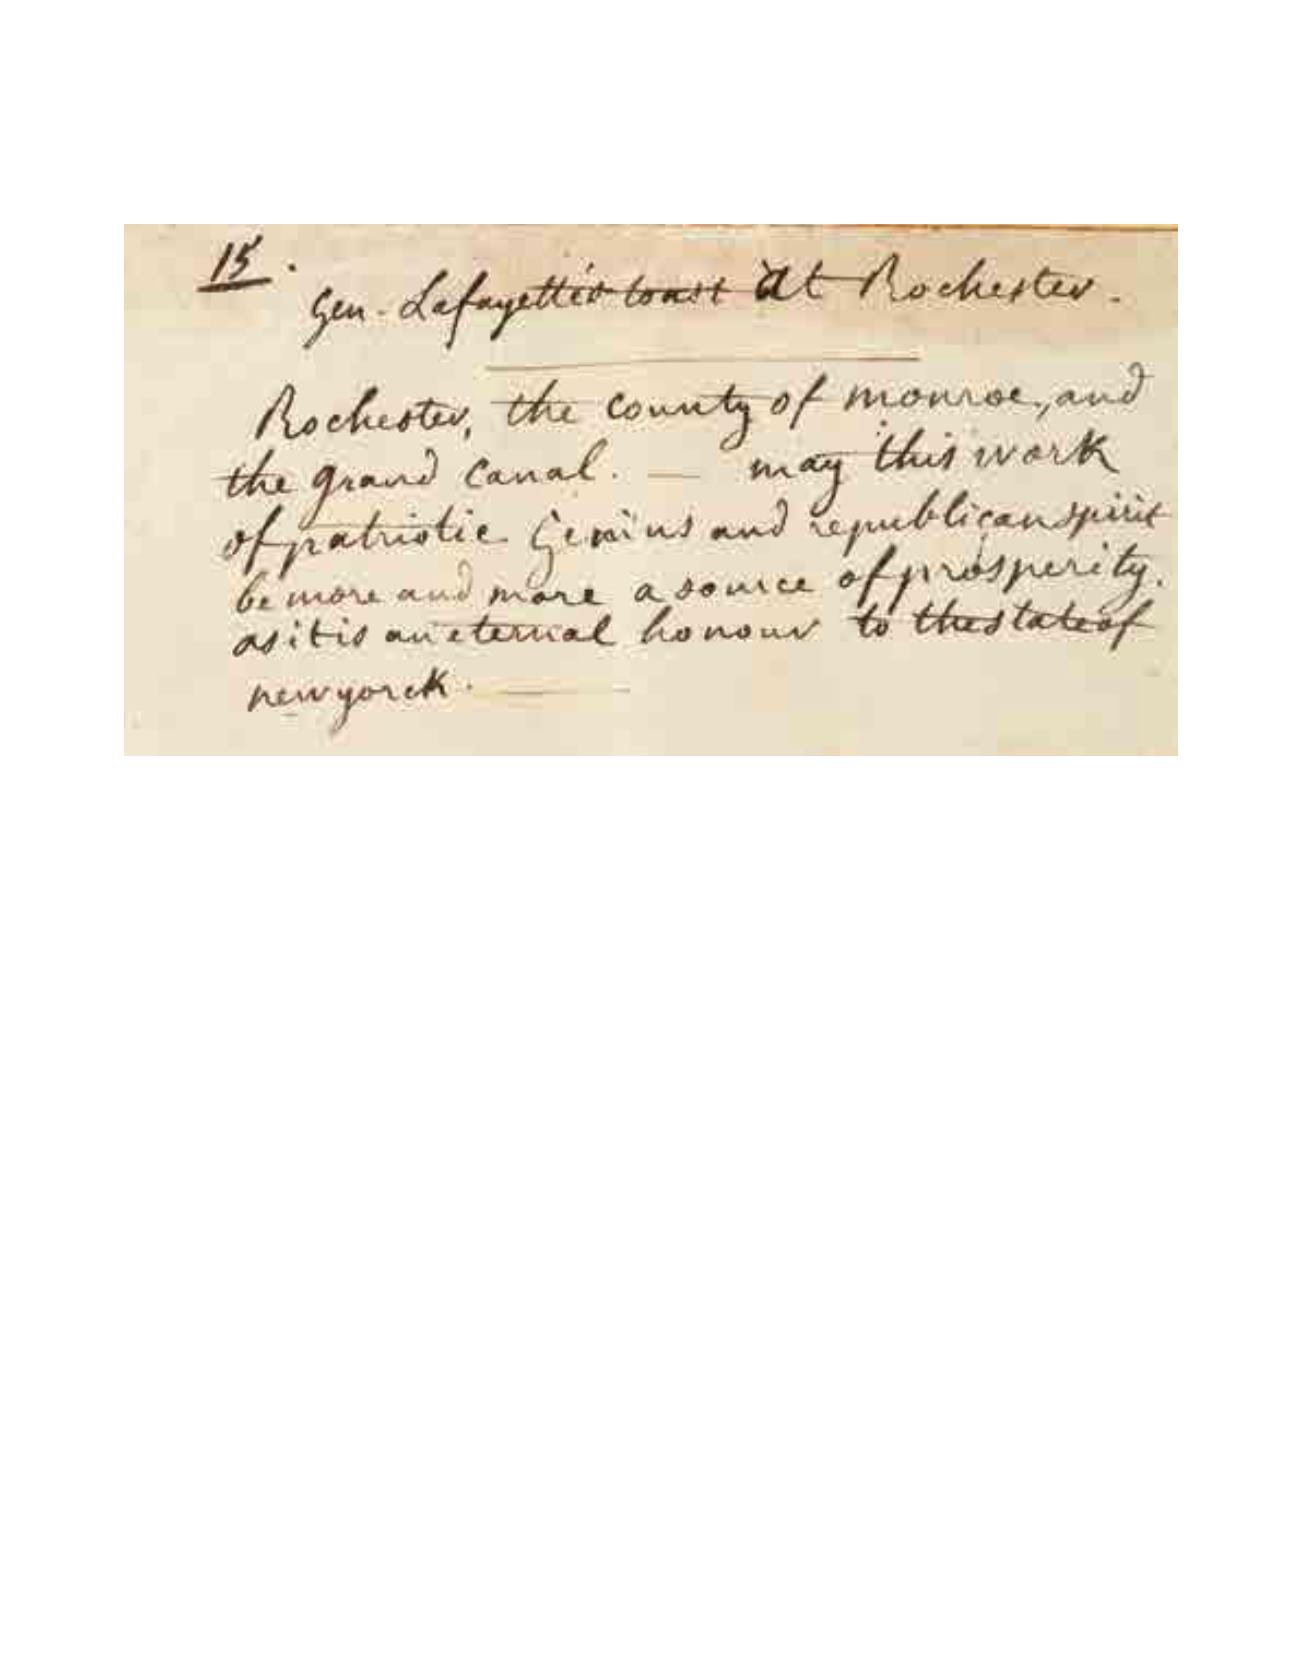 15.
Gen. Lafayette's toast at Rochester.
Rochester, the county of monroe, and
the grand canal. — may this work
of patriotic Genius and republican spirit
be more and more a source of prosperity.
as it is an eternal honour to the state of
newyorck. —